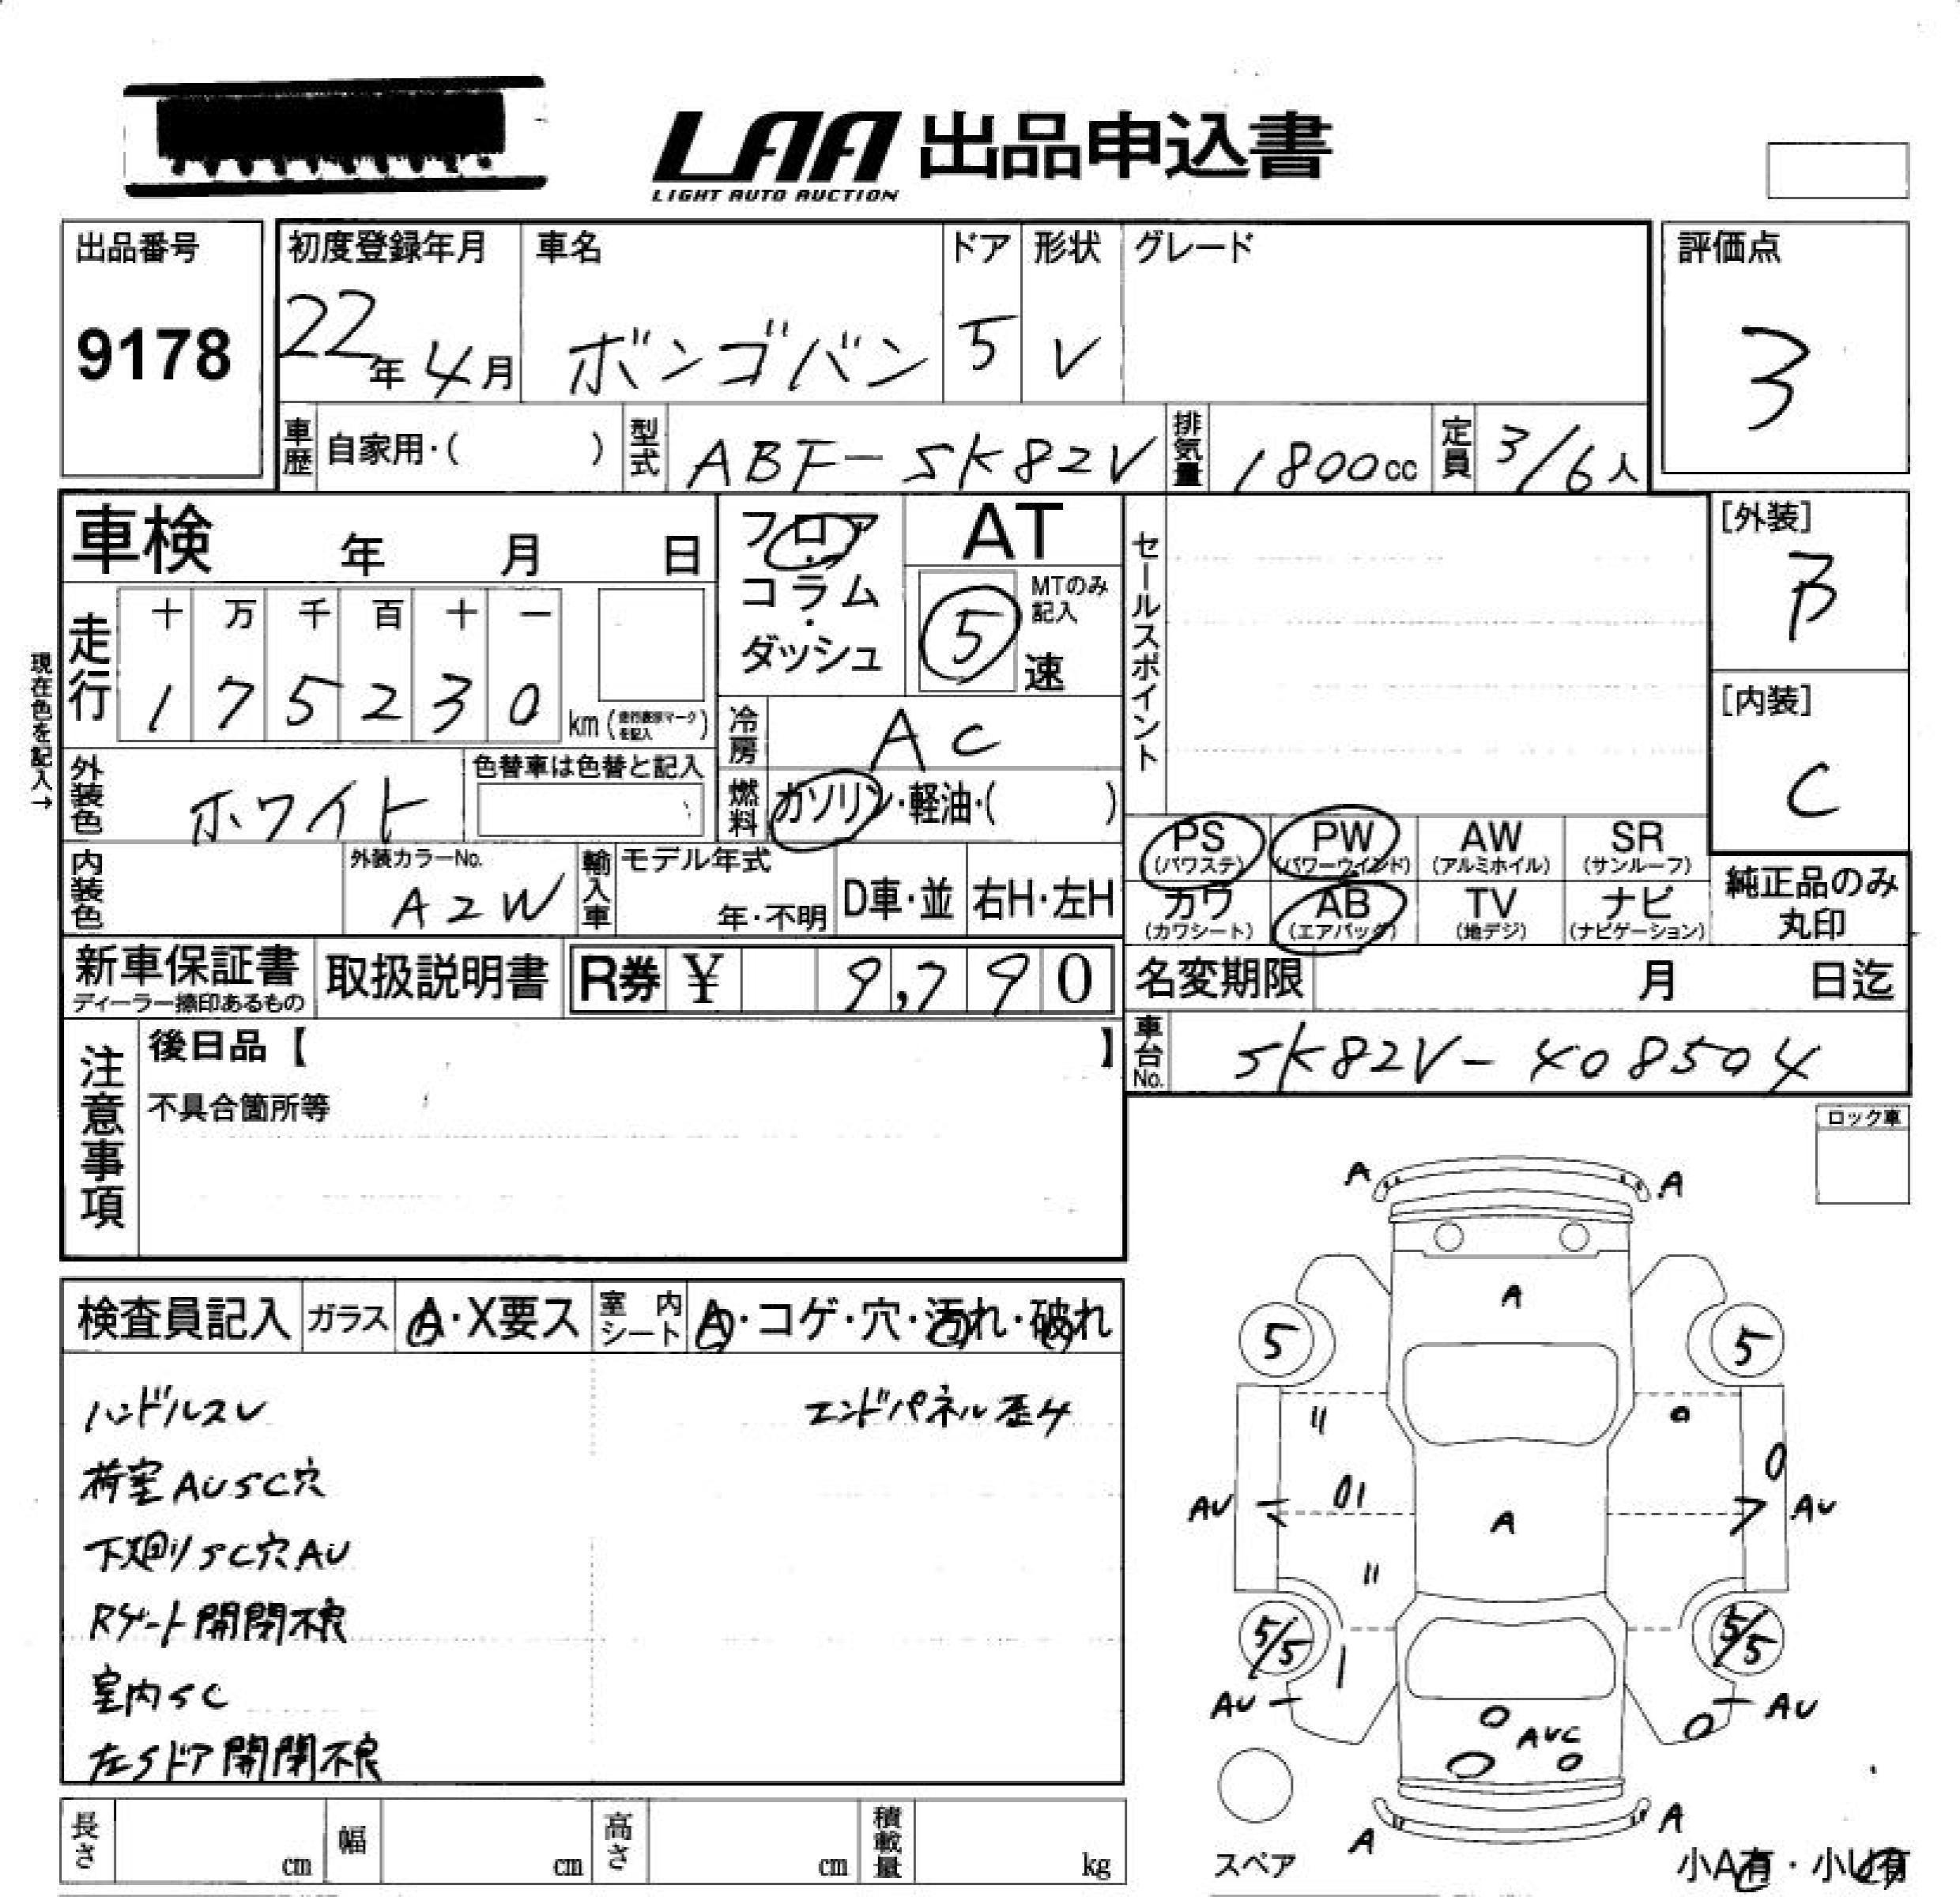 LAA 出品申込書
LIGHT AUTO AUCTION
出品番号
9178
初度登録年月
22年4月
車名
ボンゴバン
ドア
5
形状
V
グレード
評価点
3
車歴
自家用・( )
型式
ABF-SK82V
排気量
1800cc
定員
3/6人
車検 年 月 日
フロア・コラム・ダッシュ
AT
MTのみ記入
5速
セールスポイント
[外装]
B
[内装]
C
現在色を記入→
走行
十 万 千 百 十 一
1 7 5 2 3 0 km (走行表示マークを記入)
冷房
AC
外装色
ホワイト
色替車は色替と記入
燃料
ガソリン・軽油・( )
PS (パワステ)
PW (パワーウインド)
AW (アルミホイル)
SR (サンルーフ)
カワ (カワシート)
AB (エアバッグ)
TV (地デジ)
ナビ (ナビゲーション)
純正品のみ
丸印
内装色
外装カラーNo.
A2W
輸入車
モデル年式
年・不明
D車・並
右H・左H
新車保証書
ディーラー捺印あるもの
取扱説明書
R券 ¥ 9,790
名変期限 月 日迄
車台No.
SK82V-408504
注意事項
後日品【 】
不具合箇所等
ロック車
検査員記入
ガラス
A・X要ス
室内シート
A・コゲ・穴・汚れ・破れ
ハンドルスレ
エンドパネル歪4
荷室AUSC穴
下廻りSC穴AU
Rゲート開閉不良
室内SC
左Sドア開閉不良
A A
A
5 5
AU AU
A
5/5 5/5
AU AU
AUC
A A
スペア
小A有・小U有
長さ cm
幅 cm
高さ cm
積載量 kg